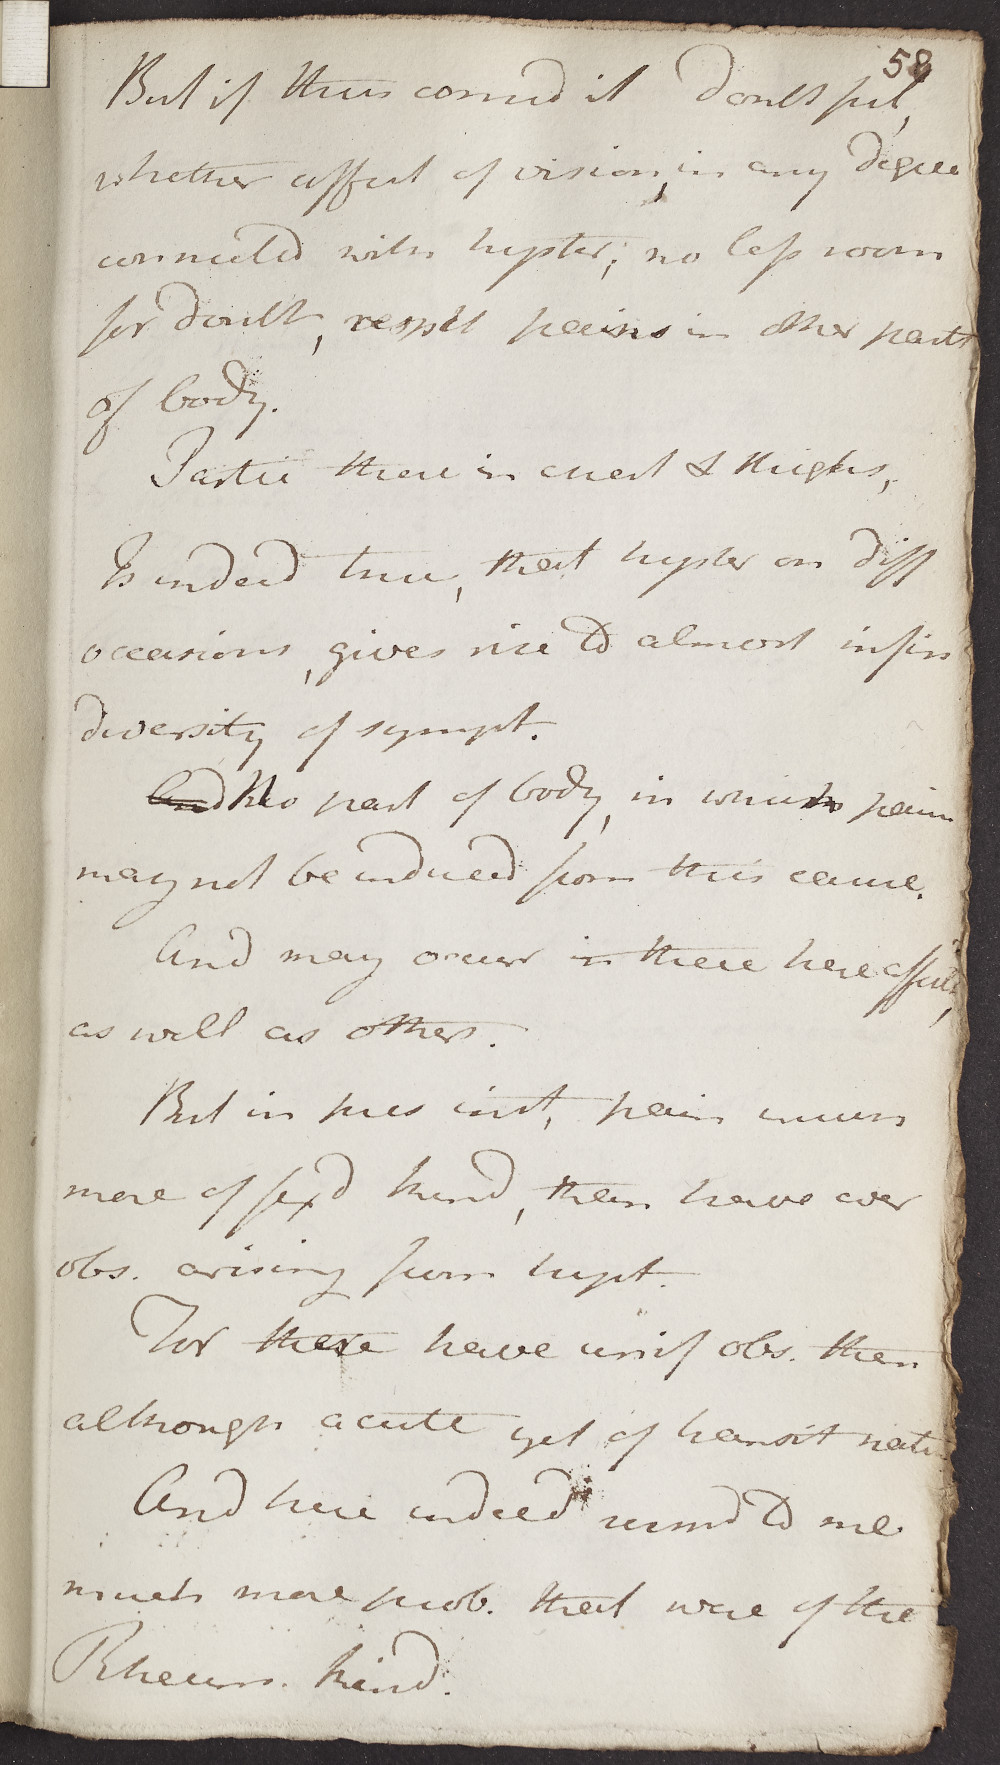 58
But if thus consid it doubtful,
whether affect of vision, in any degree
connected with hyster; no less room
for doubt, respect pains in other parts
of body.
Partic these in chest & thighs,
Is indeed true, that hyster on diff
occasions, gives rise to almost infin
diversity of sympt.
And No part of body, in which pain
may not be induced from this cause.
And may occur in these here affected,
as well as others.
But in pres inst, pain
more of fix'd kind, than have ever
obs. arising from hyst.
For these have unif obs. them
although acute yet of transit natu
And here indeed seemd to me
much more prob. that were of the
Rheum. kind.